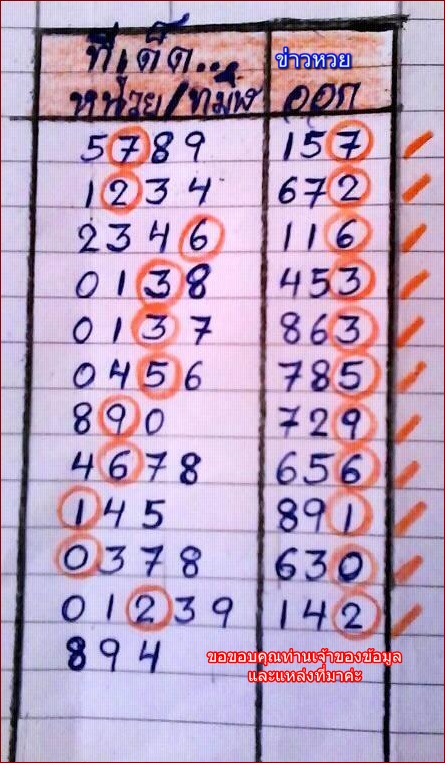 ทีเด็ด... ข่าวหวย
หน่วย/ทมิฬ ออก
5789 157
1234 672
2346 116
0138 453
0137 863
0456 785
890 729
4678 656
145 891
0378 630
01239 142
894
ขอขอบคุณท่านเจ้าของข้อมูล
และแหล่งที่มาค่ะ